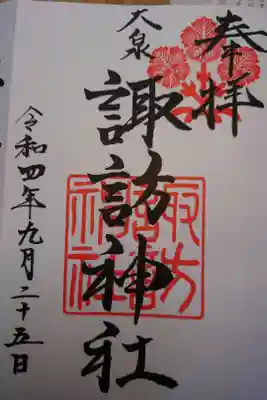 奉拝
大泉
諏訪神社
令和四年九月二十五日
諏訪神社